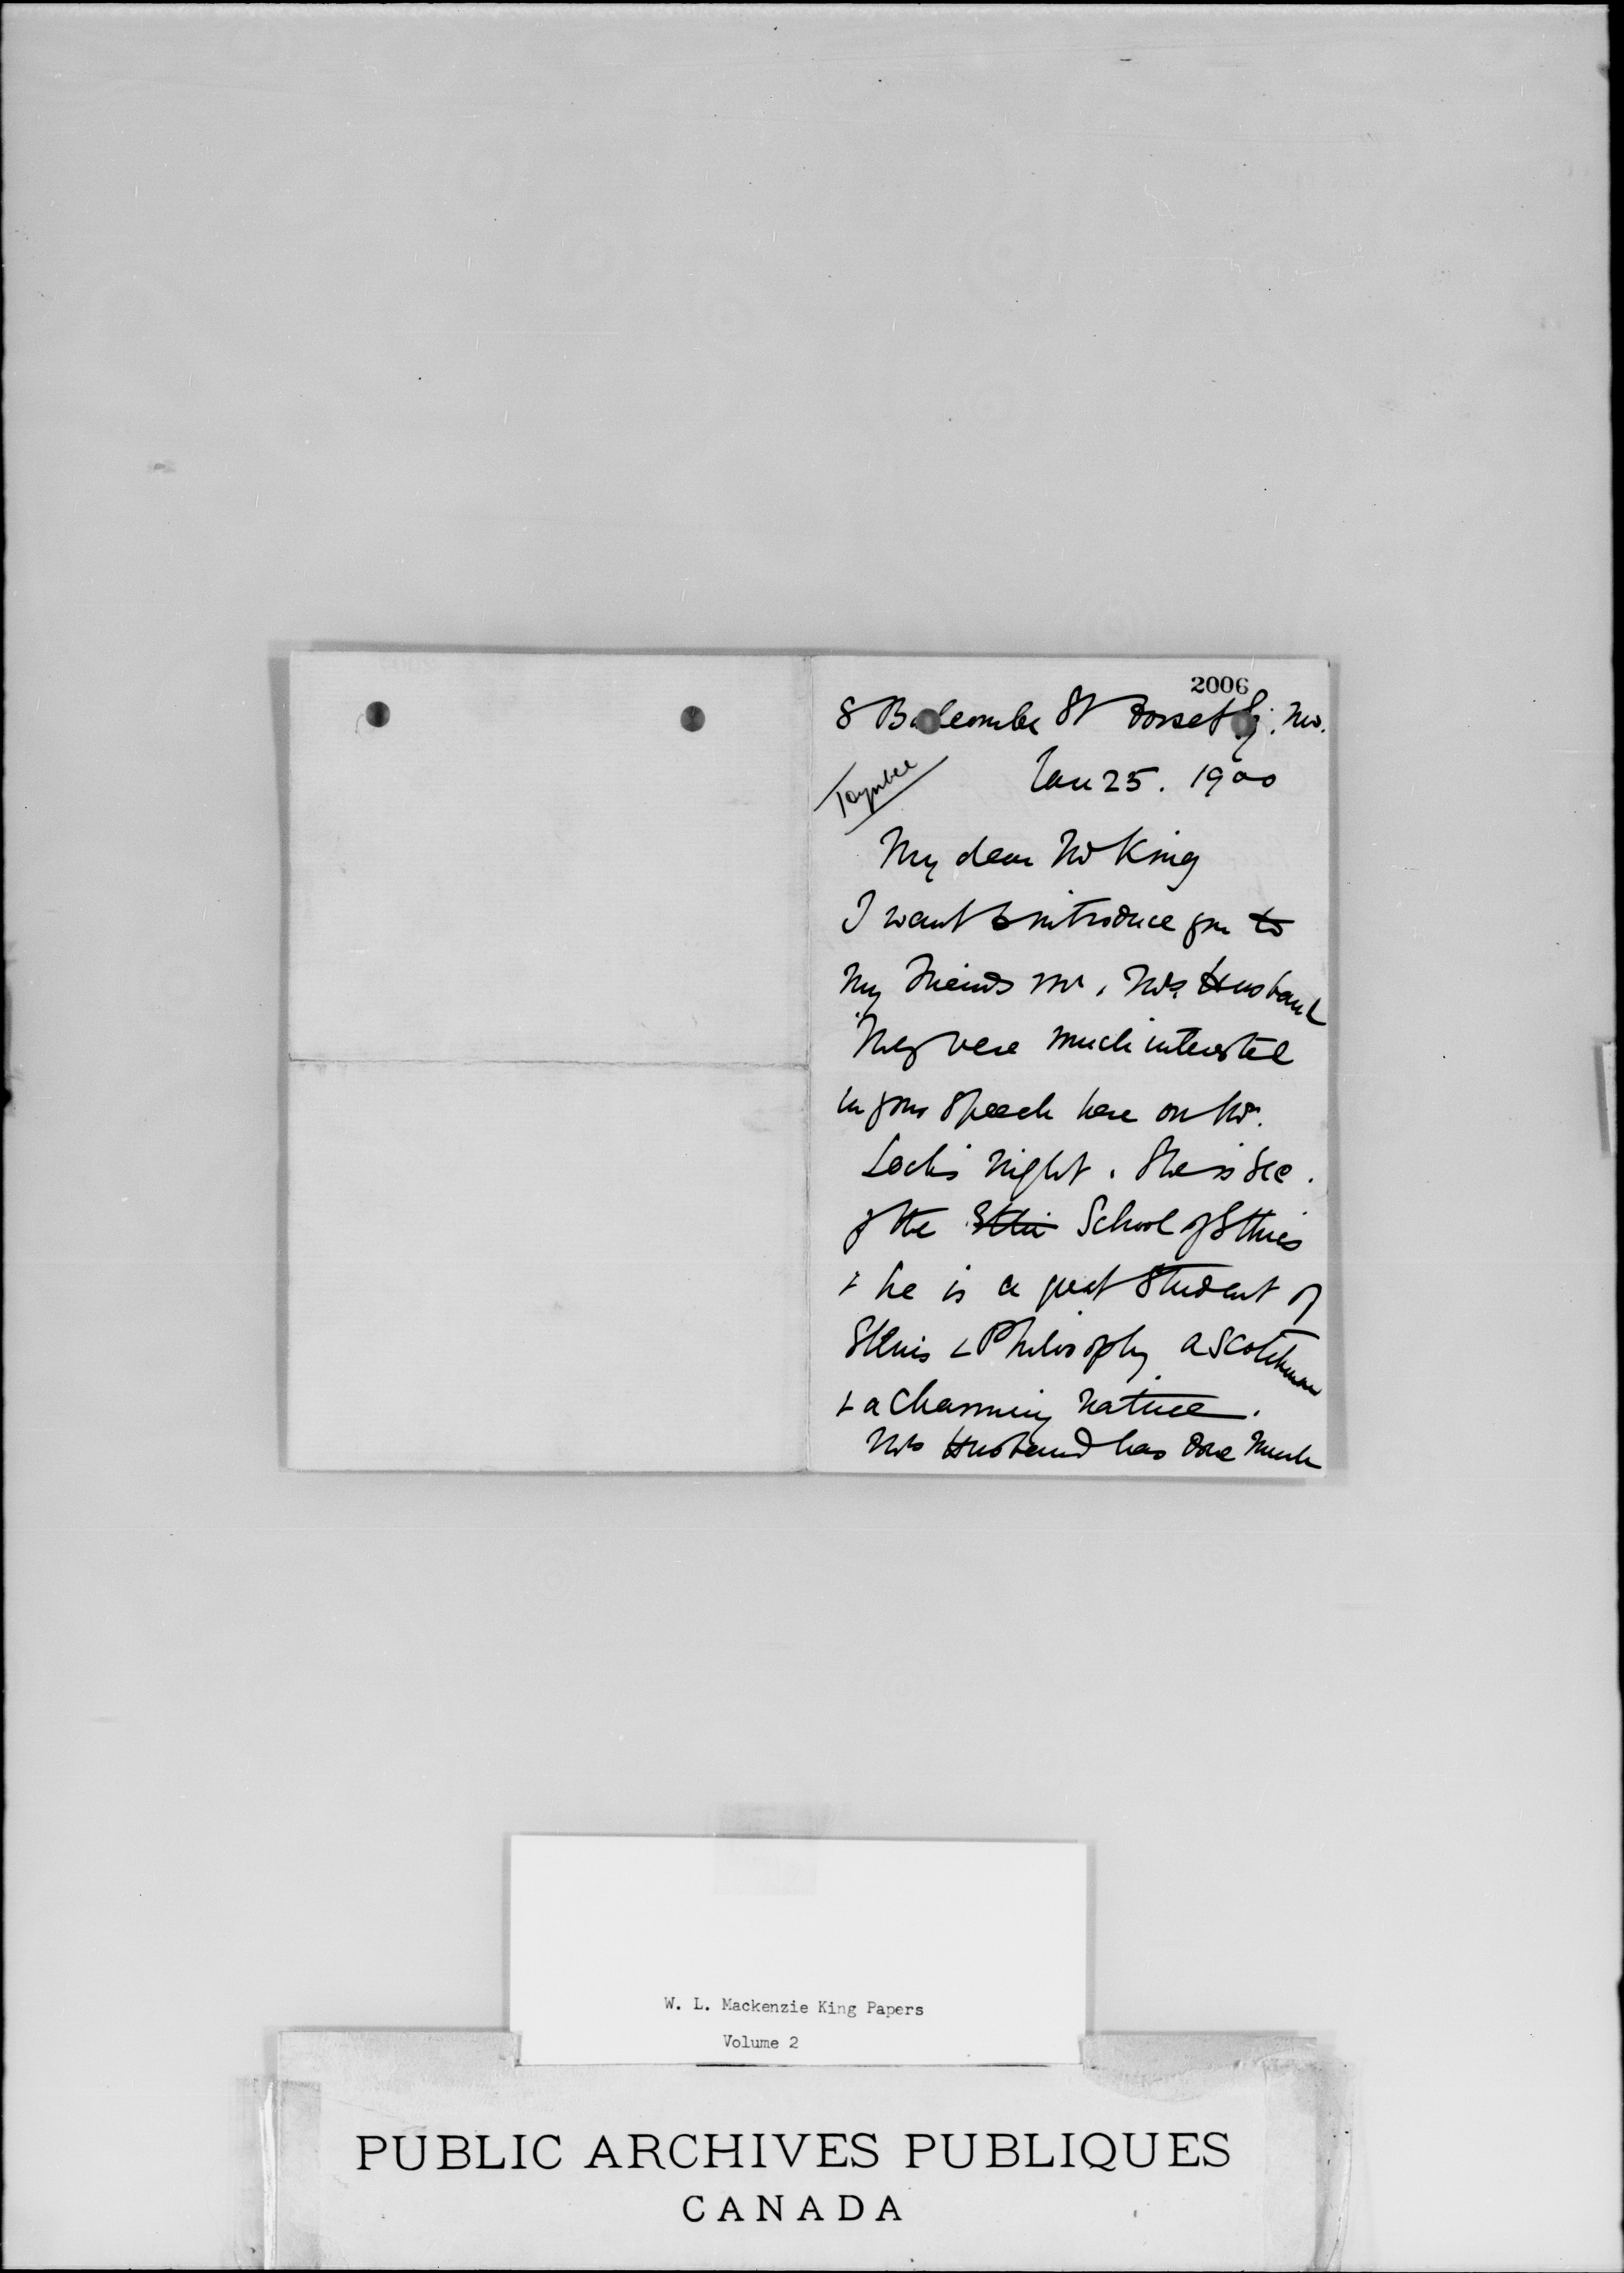 2006
8 Balcombe St Dorset Sq. NW.
Toynbee
Jan 25. 1900
My dear Mr King
I want to introduce you to
my friends Mr. Mrs. Husband
They were much interested
in your speech here on Mr.
Loch's night. She is Sec.
of the Ethi School of Ethics
& he is a great student of
Ethics & Philosophy a Scotchman
& a charming nature.
Mrs Husband has done much
W. L. Mackenzie King Papers
Volume 2
PUBLIC ARCHIVES PUBLIQUES
CANADA